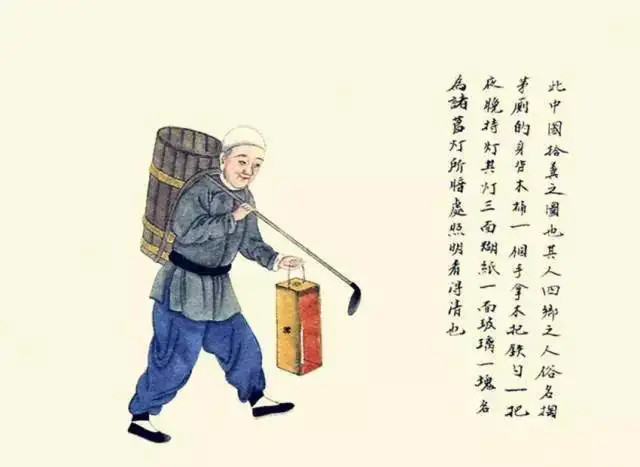 此中國拾糞之圖也其人四鄉之人俗名掏
茅厠的身背木桶一個手拿木把鉄勺一把
夜晚持灯其灯三面糊紙一面玻璃一塊名
為諸葛灯所將處照明看得清也